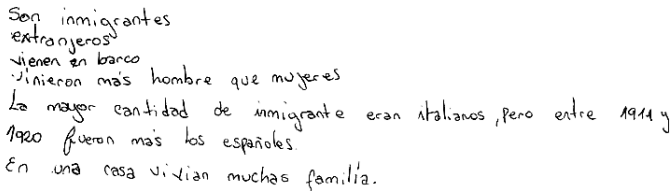 Son inmigrantes
extranjeros
vienen en barco
vinieron más hombre que mujeres
La mayor cantidad de inmigrante eran italianos, pero entre 1911 y
1920 fueron más los españoles.
En una casa vivian muchas familia.